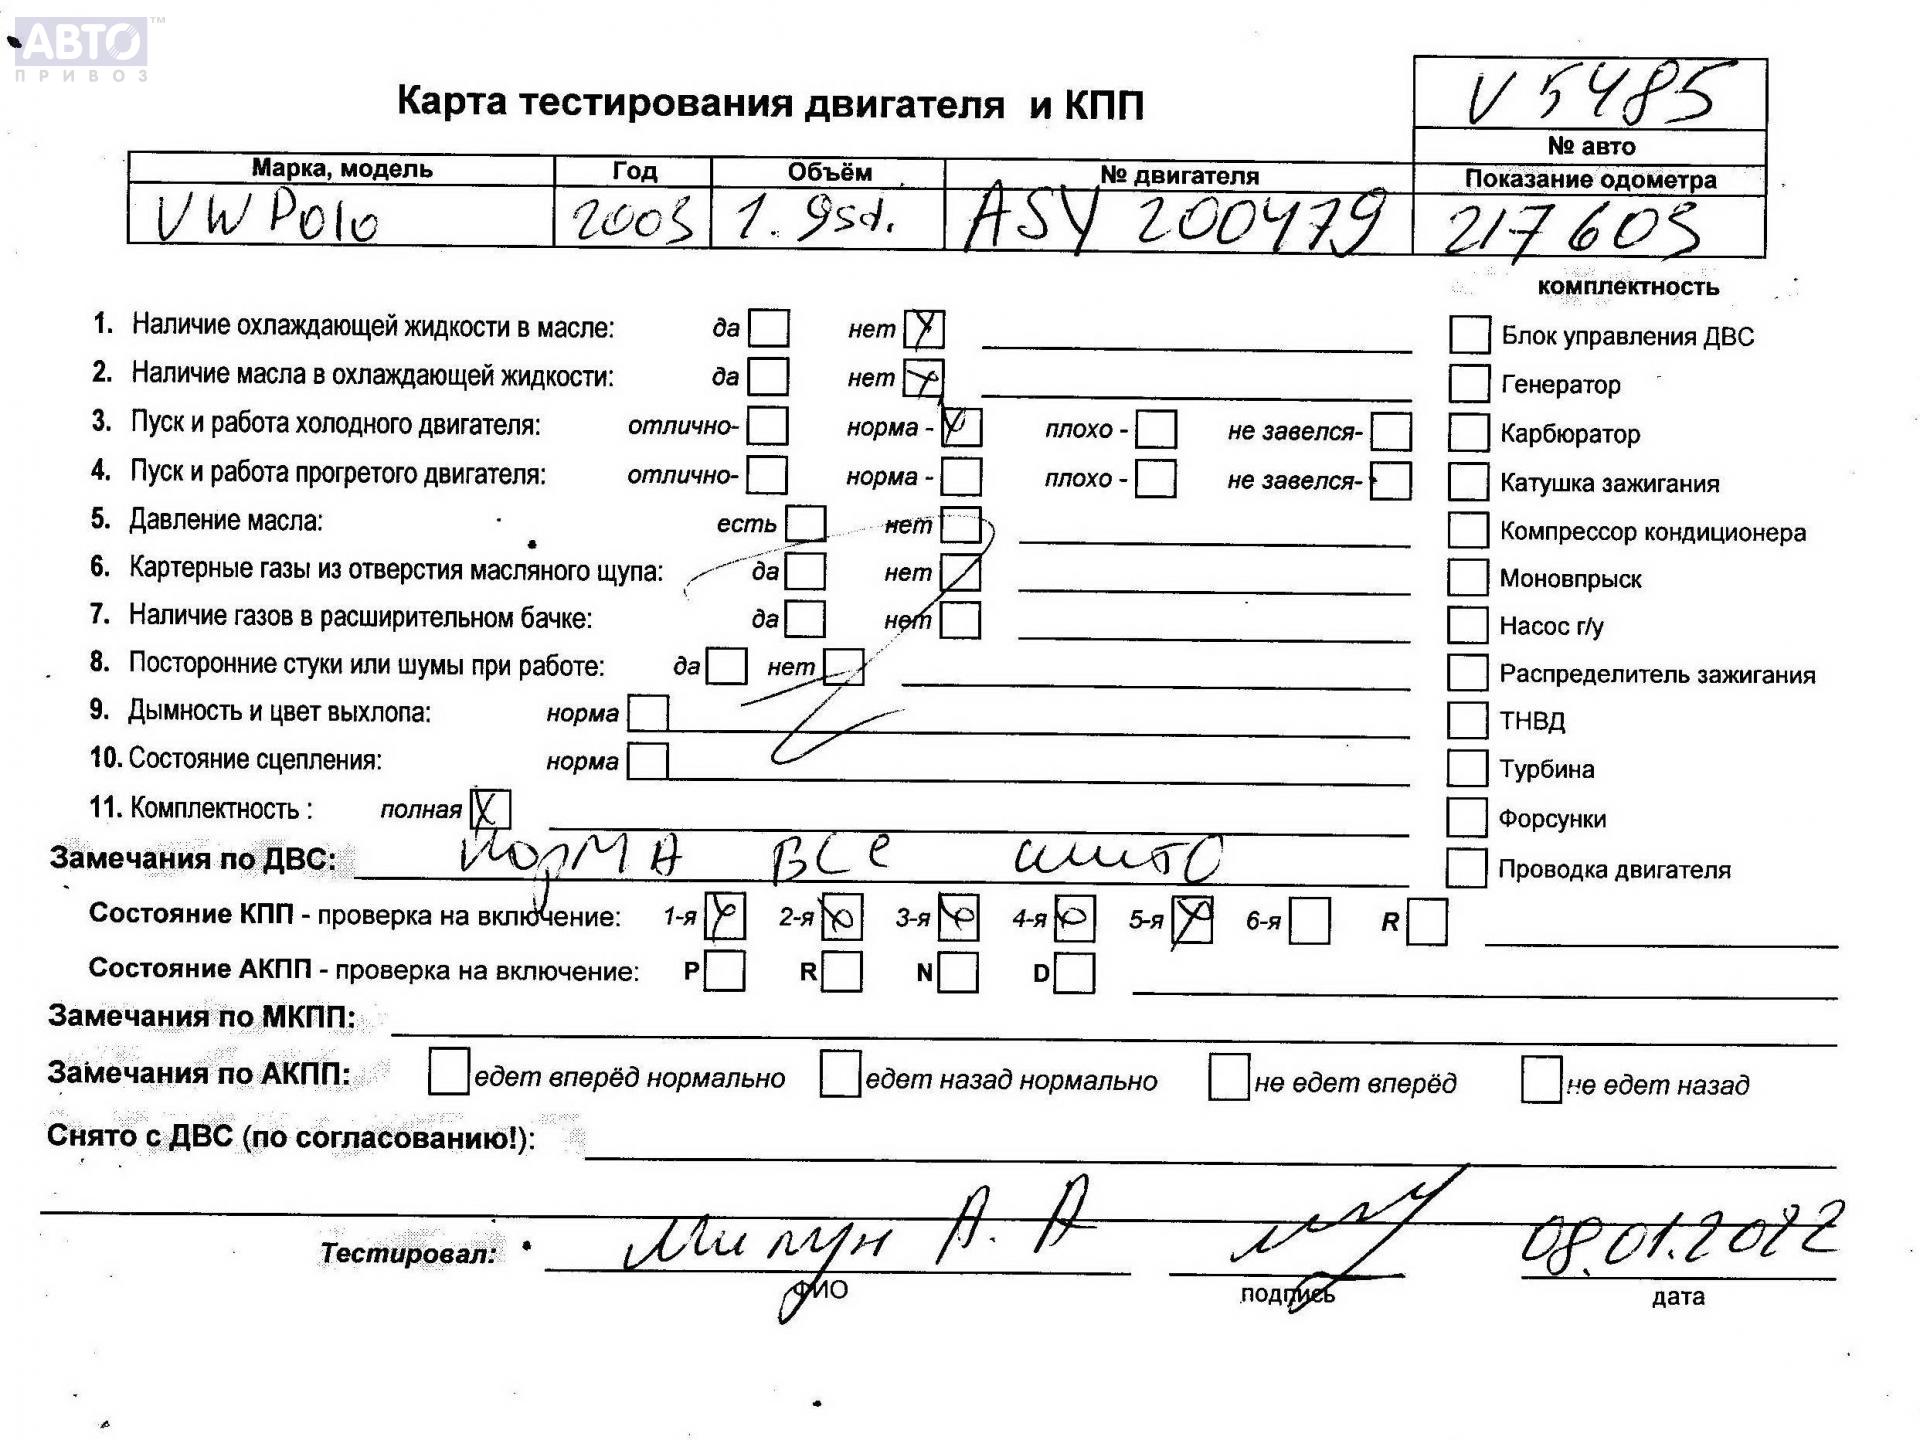 АВТО™
ПРИВОЗ
Карта тестирования двигателя и КПП
V 5485
№ авто
Марка, модель Год Объём № двигателя Показание одометра
VW Polo 2003 1.9sd. ASY 200479 217603
комплектность
1. Наличие охлаждающей жидкости в масле: да нет Блок управления ДВС
2. Наличие масла в охлаждающей жидкости: да нет Генератор
3. Пуск и работа холодного двигателя: отлично- норма - плохо - не завелся- Карбюратор
4. Пуск и работа прогретого двигателя: отлично- норма - плохо - не завелся- Катушка зажигания
5. Давление масла: есть нет Компрессор кондиционера
6. Картерные газы из отверстия масляного щупа: да нет Моновпрыск
7. Наличие газов в расширительном бачке: да нет Насос г/у
8. Посторонние стуки или шумы при работе: да нет Распределитель зажигания
9. Дымность и цвет выхлопа: норма ТНВД
10. Состояние сцепления: норма Турбина
11. Комплектность : полная Форсунки
Замечания по ДВС: Норма все Проводка двигателя
Состояние КПП - проверка на включение: 1-я 2-я 3-я 4-я 5-я 6-я R
Состояние АКПП - проверка на включение: P R N D
Замечания по МКПП:
Замечания по АКПП: едет вперёд нормально едет назад нормально не едет вперёд не едет назад
Снято с ДВС (по согласованию!):
Тестировал: А. А 08.01.2022
ФИО подпись дата